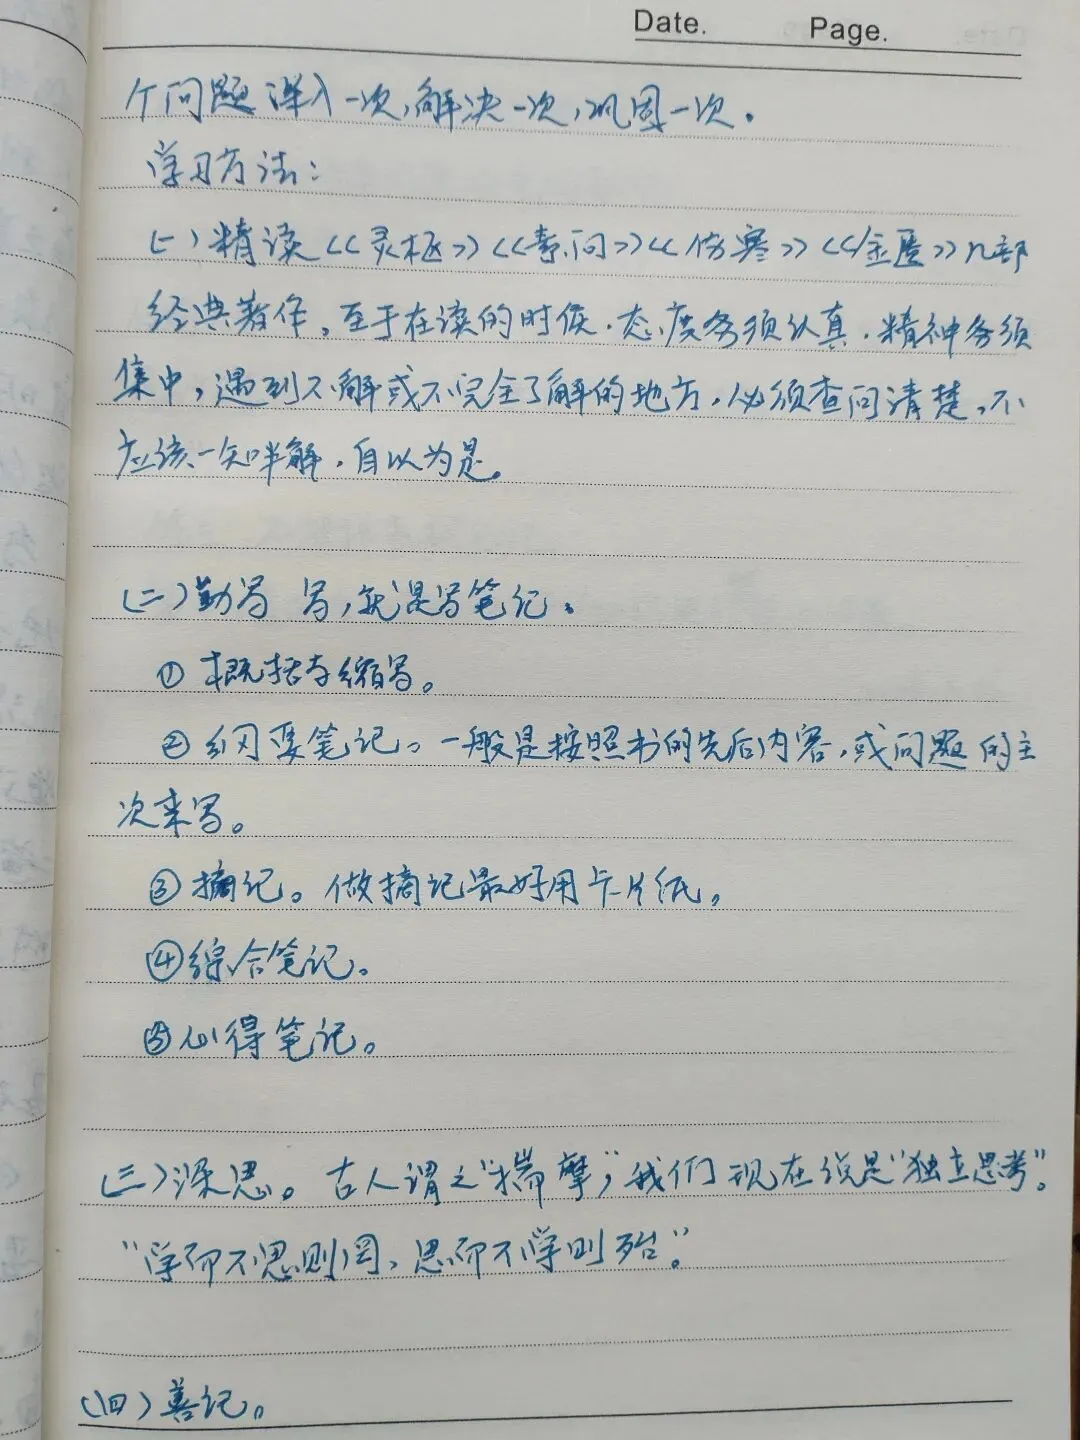 Date. Page.
个问题深入一次,解决一次,巩固一次。
学习方法:
(一)精读《灵枢》《素问》《伤寒》《金匮》几部
经典著作。至于在读的时候.态度务须认真.精神务须
集中,遇到不解或不完全了解的地方,必须查问清楚,不
应该一知半解,自以为是。
(二)勤写 写,就是写笔记。
① 概括与缩写。
② 纲要笔记。一般是按照书的先后内容,或问题的主
次来写。
③ 摘记。做摘记最好用卡片纸。
④综合笔记。
⑤心得笔记。
(三)深思。古人谓之“揣摩”,我们现在说是“独立思考”。
“学而不思则罔,思而不学则殆”。
(四)善记。